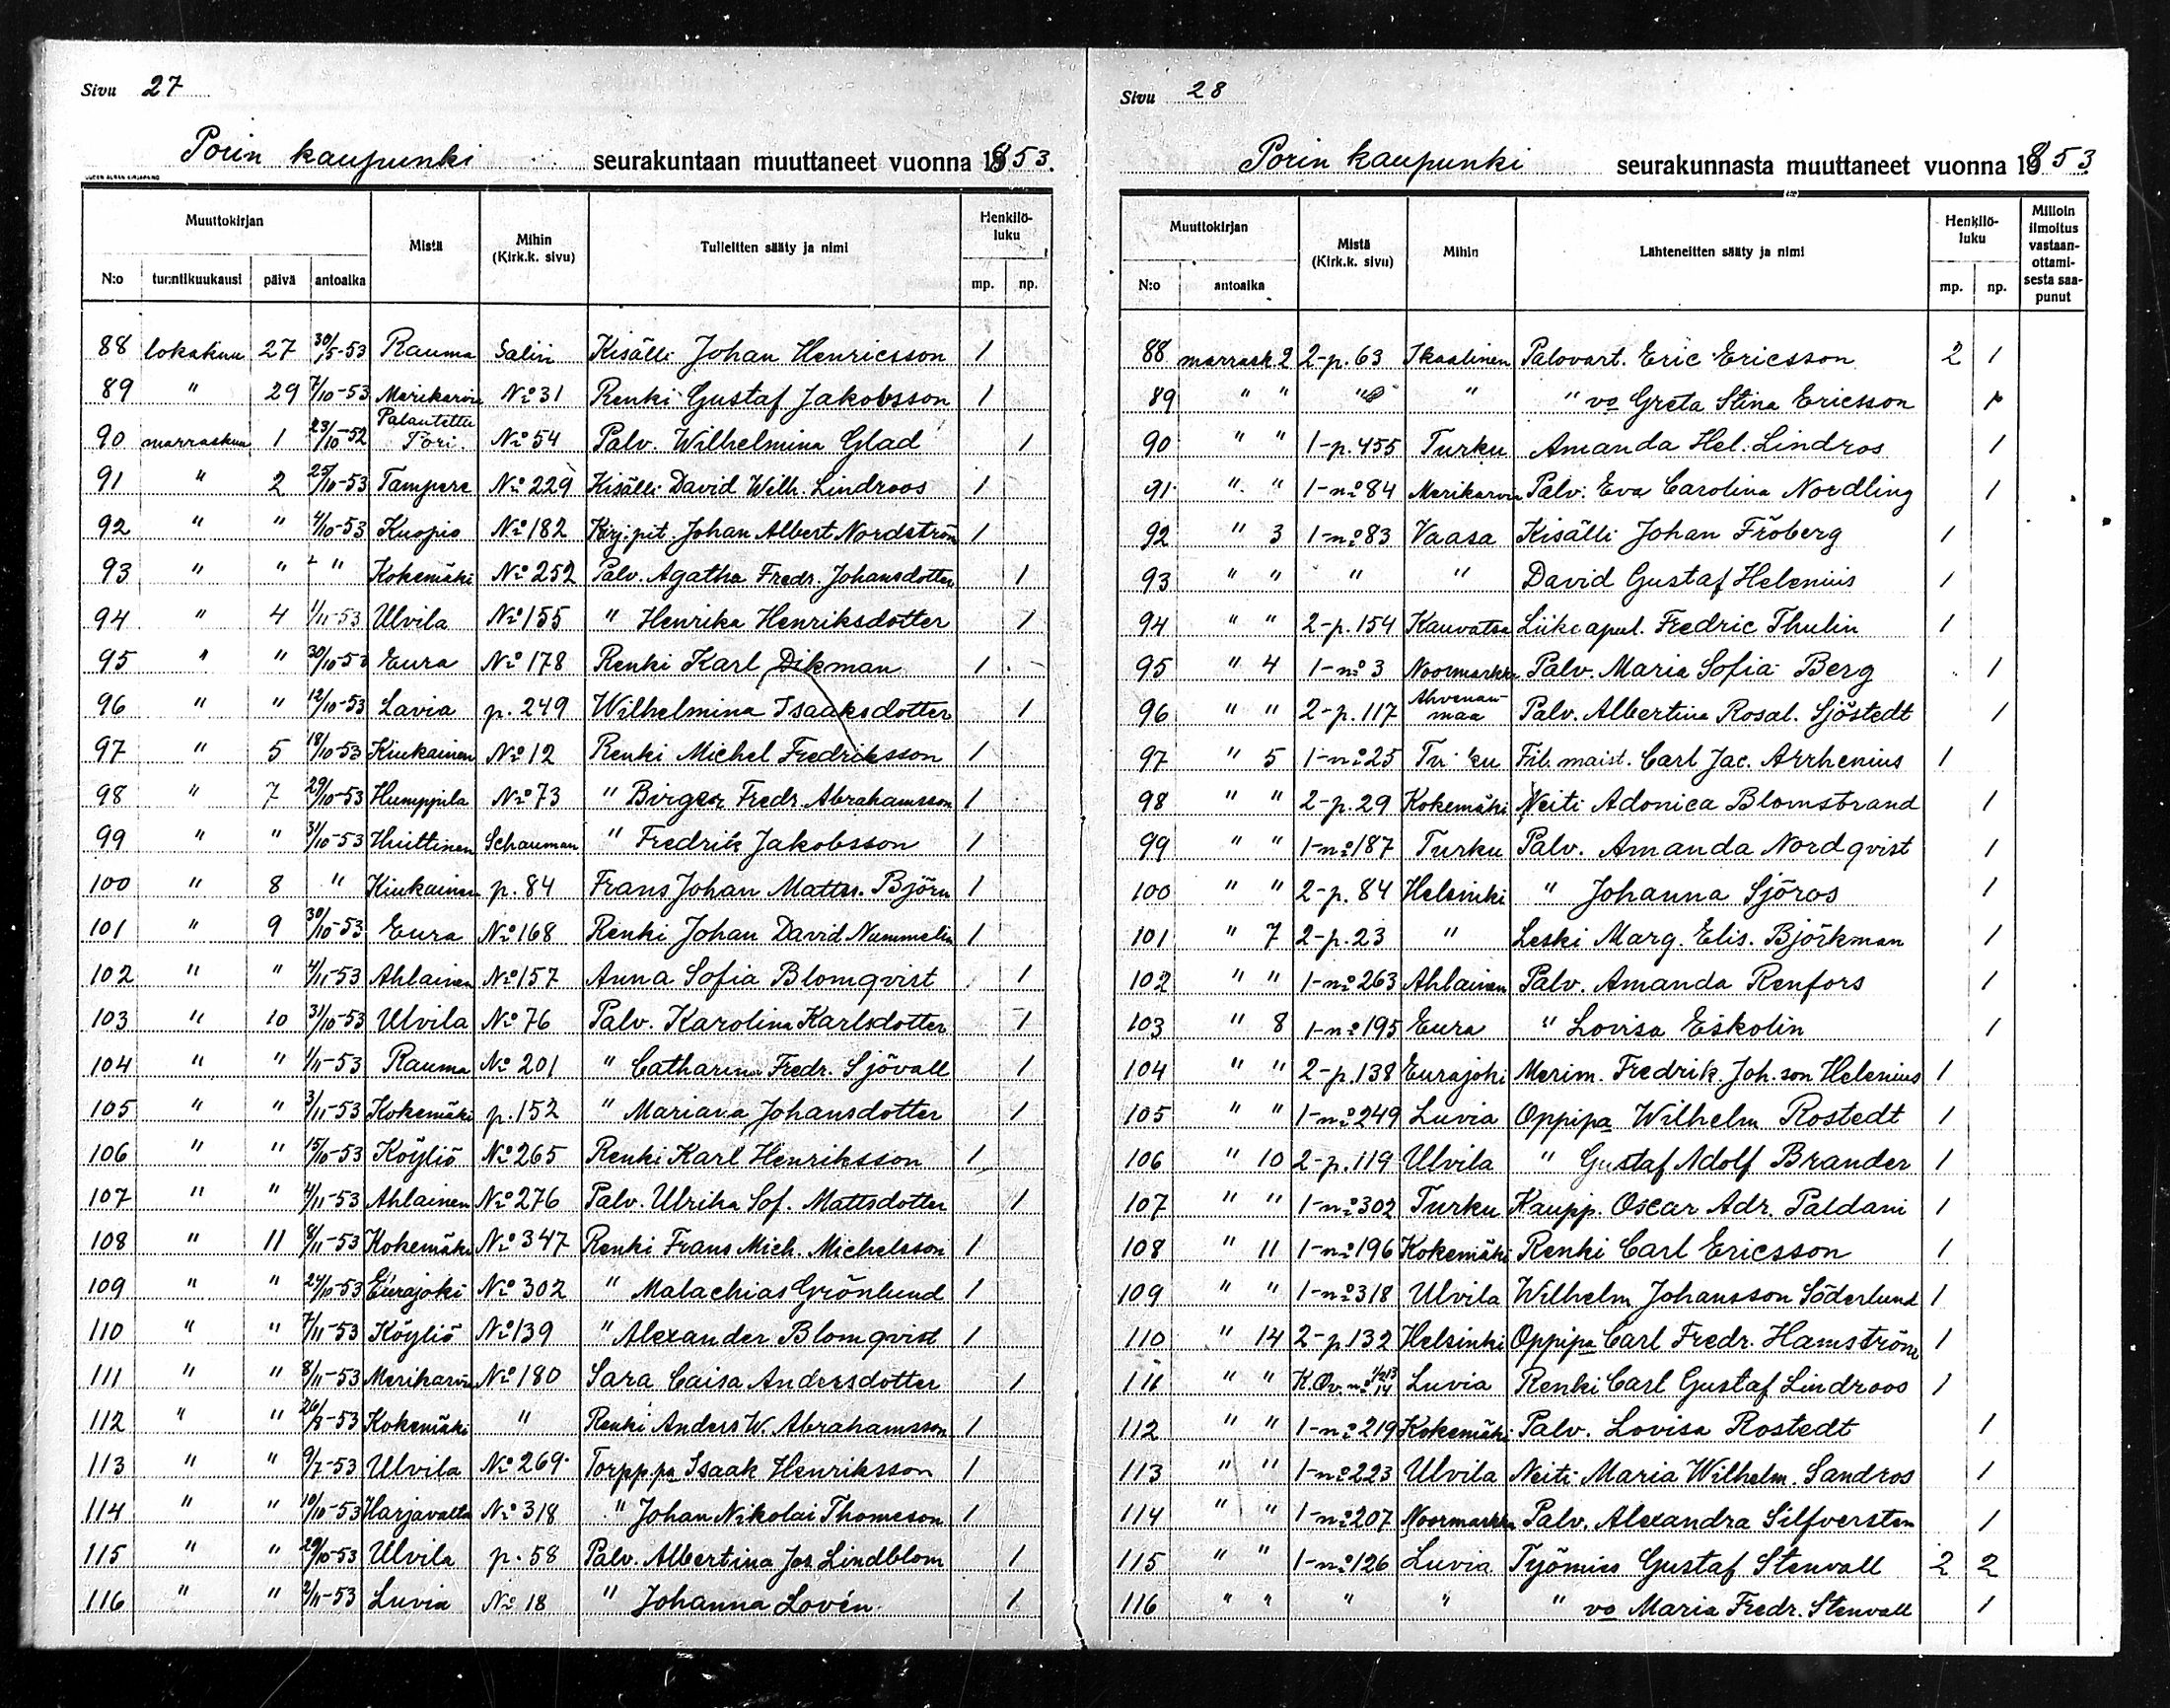 Sivu 27
Porin kaupunki seurakuntaan muuttaneet vuonna 1853.
UUDEN AURAN KIRJAPAINO
Muuttokirjan Mistä Mihin (Kirk.k. sivu) Tulleitten sääty ja nimi Henkilö-luku
N:o tuontikuukausi päivä antoaika mp. np.
88 lokakuu 27 30/5-53 Rauma Salin Kisälli Johan Henricsson 1
89 " 29 7/10-53 Merikarvia No 31 Renki Gustaf Jakobsson 1
90 marraskuu 1 23/10-52 Palautettu Pori. No 54 Palv. Wilhelmina Glad 1
91 " 2 25/10-53 Tampere No 229 Kisälli David Wilh. Lindroos 1
92 " " 4/10-53 Kuopio No 182 Kirj.pit. Johan Albert Nordström 1
93 " " " Kokemäki No 252 Palv. Agatha Fredr. Johansdotter 1
94 " 4 1/11-53 Ulvila No 155 " Henrika Henriksdotter 1
95 " " 30/10-53 Eura No 178 Renki Karl Dikman 1
96 " " 12/10-53 Lavia p. 249 Wilhelmina Isaaksdotter 1
97 " 5 18/10-53 Kiukainen No 12 Renki Michel Fredriksson 1
98 " 7 29/10-53 Humppila No 73 " Birger Fredr. Abrahamsson 1
99 " " 31/10-53 Huittinen Schauman " Fredrik Jakobsson 1
100 " 8 " Kiukainen p. 84 Frans Johan Matts. Björn 1
101 " 9 30/10-53 Eura No 168 Renki Johan David Nummelin 1
102 " " 4/11-53 Ahlainen No 157 Anna Sofia Blomqvist 1
103 " 10 31/10-53 Ulvila No 76 Palv. Karolina Karlsdotter 1
104 " " 1/11-53 Rauma No 201 " Catharina Fredr. Sjövall 1
105 " " 3/11-53 Kokemäki p. 152 " Mariana Johansdotter 1
106 " " 15/10-53 Köyliö No 265 Renki Karl Henriksson 1
107 " " 4/11-53 Ahlainen No 276 Palv. Ulrika Sof. Mattsdotter 1
108 " 11 8/11-53 Kokemäki No 347 Renki Frans Mich. Michelsson 1
109 " " 24/10-53 Eurajoki No 302 " Malachias Grönlund 1
110 " " 7/11-53 Köyliö No 139 " Alexander Blomqvist 1
111 " " 8/11-53 Merikarvia No 180 Sara Caisa Andersdotter 1
112 " " 26/8-53 Kokemäki " Renki Anders W. Abrahamsson 1
113 " " 9/7-53 Ulvila No 269 Torpp.pa Isaak Henriksson 1
114 " " 10/10-53 Harjavalta No 318 " Johan Nikolai Thomeson 1
115 " " 29/10-53 Ulvila p. 58 Palv. Albertina Jos. Lindblom 1
116 " " 2/11-53 Luvia No 18 " Johanna Lovén. 1
Sivu 28
Porin kaupunki seurakunnasta muuttaneet vuonna 1853.
Muuttokirjan Mistä (Kirk.k. sivu) Mihin Lähteneitten sääty ja nimi Henkilö-luku Milloin ilmoitus vastaan-ottami-sesta saa-punut
N:o antoaika mp. np.
88 marrask. 2 2-p. 63 Ikaalinen Palovart. Eric Ericsson 2 1
89 " " " " " vo Greta Stina Ericsson
90 " " 1-p. 455 Turku Amanda Hel. Lindros 1
91 " " 1-no 84 Merikarvia Palv. Eva Carolina Nordling 1
92 " 3 1-no 83 Vaasa Kisälli Johan Fröberg 1
93 " " " " David Gustaf Helenius 1
94 " " 2-p. 154 Kauvatsa Liikeapul. Fredric Thulin 1
95 " 4 1-no 3 Noormarkku Palv. Maria Sofia Berg 1
96 " " 2-p. 117 Ahvenan-maa Palv. Albertina Rosal. Sjöstedt 1
97 " 5 1-no 25 Turku Fil. maist. Carl Jac. Arrhenius 1
98 " " 2-p. 29 Kokemäki Neiti Adonica Blomstrand 1
99 " " 1-no 187 Turku Palv. Amanda Nordqvist 1
100 " " 2-p. 84 Helsinki " Johanna Sjöros 1
101 " 7 2-p. 23 " Leski Marg. Elis. Björkman 1
102 " " 1-no 263 Ahlainen Palv. Amanda Renfors 1
103 " 8 1-no 195 Eura " Lovisa Eskolin 1
104 " " 2-p. 138 Eurajoki Merim. Fredrik. Joh.son Helenius 1
105 " " 1-no 249 Luvia Oppipa Wilhelm Rostedt 1
106 " 10 2-p. 119 Ulvila " Gustaf Adolf Brander 1
107 " " 1-no 302 Turku Kaupp. Oscar Adr. Paldani 1
108 " 11 1-no 196 Kokemäki Renki Carl Ericsson 1
109 " " 1-no 318 Ulvila Wilhelm Johansson Söderlund 1
110 " 14 2-p. 132 Helsinki Oppipa Carl Fredr. Hamström 1
111 " " Luvia Renki Carl Gustaf Lindroos 1
112 " " 1-no 219 Kokemäki Palv. Lovisa Rostedt 1
113 " " 1-no 223 Ulvila Neiti Maria Wilhelm. Sandros 1
114 " " 1-no 207 Noormarkku Palv. Alexandra Silfversten 1
115 " " 1-no 126 Luvia Työmies Gustaf Stenvall 2 2
116 " " " " " vo Maria Fredr. Stenvall 1